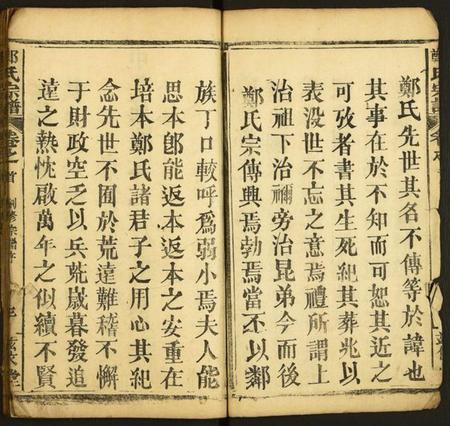 鄭氏宗譜
鄭氏先世其名不傳等於諱也
其事在於不知而可恕其近之
可攷者書其生死紀其葬兆以
表没世不忘之意焉禮所謂上
治祖下治禰旁治昆弟今而後
鄭氏宗傳興焉勃焉當不以鄰
族丁口較呼為弱小焉夫人能
思本卽能返本返本之安重在
培本鄭氏諸君子之用心其紀
念先世不囿於荒遠難稽不懈
于財政空乏以兵燹歲暮發追
遠之熱忱啟萬年之似續不賢
鄭氏宗譜 卷之首 三